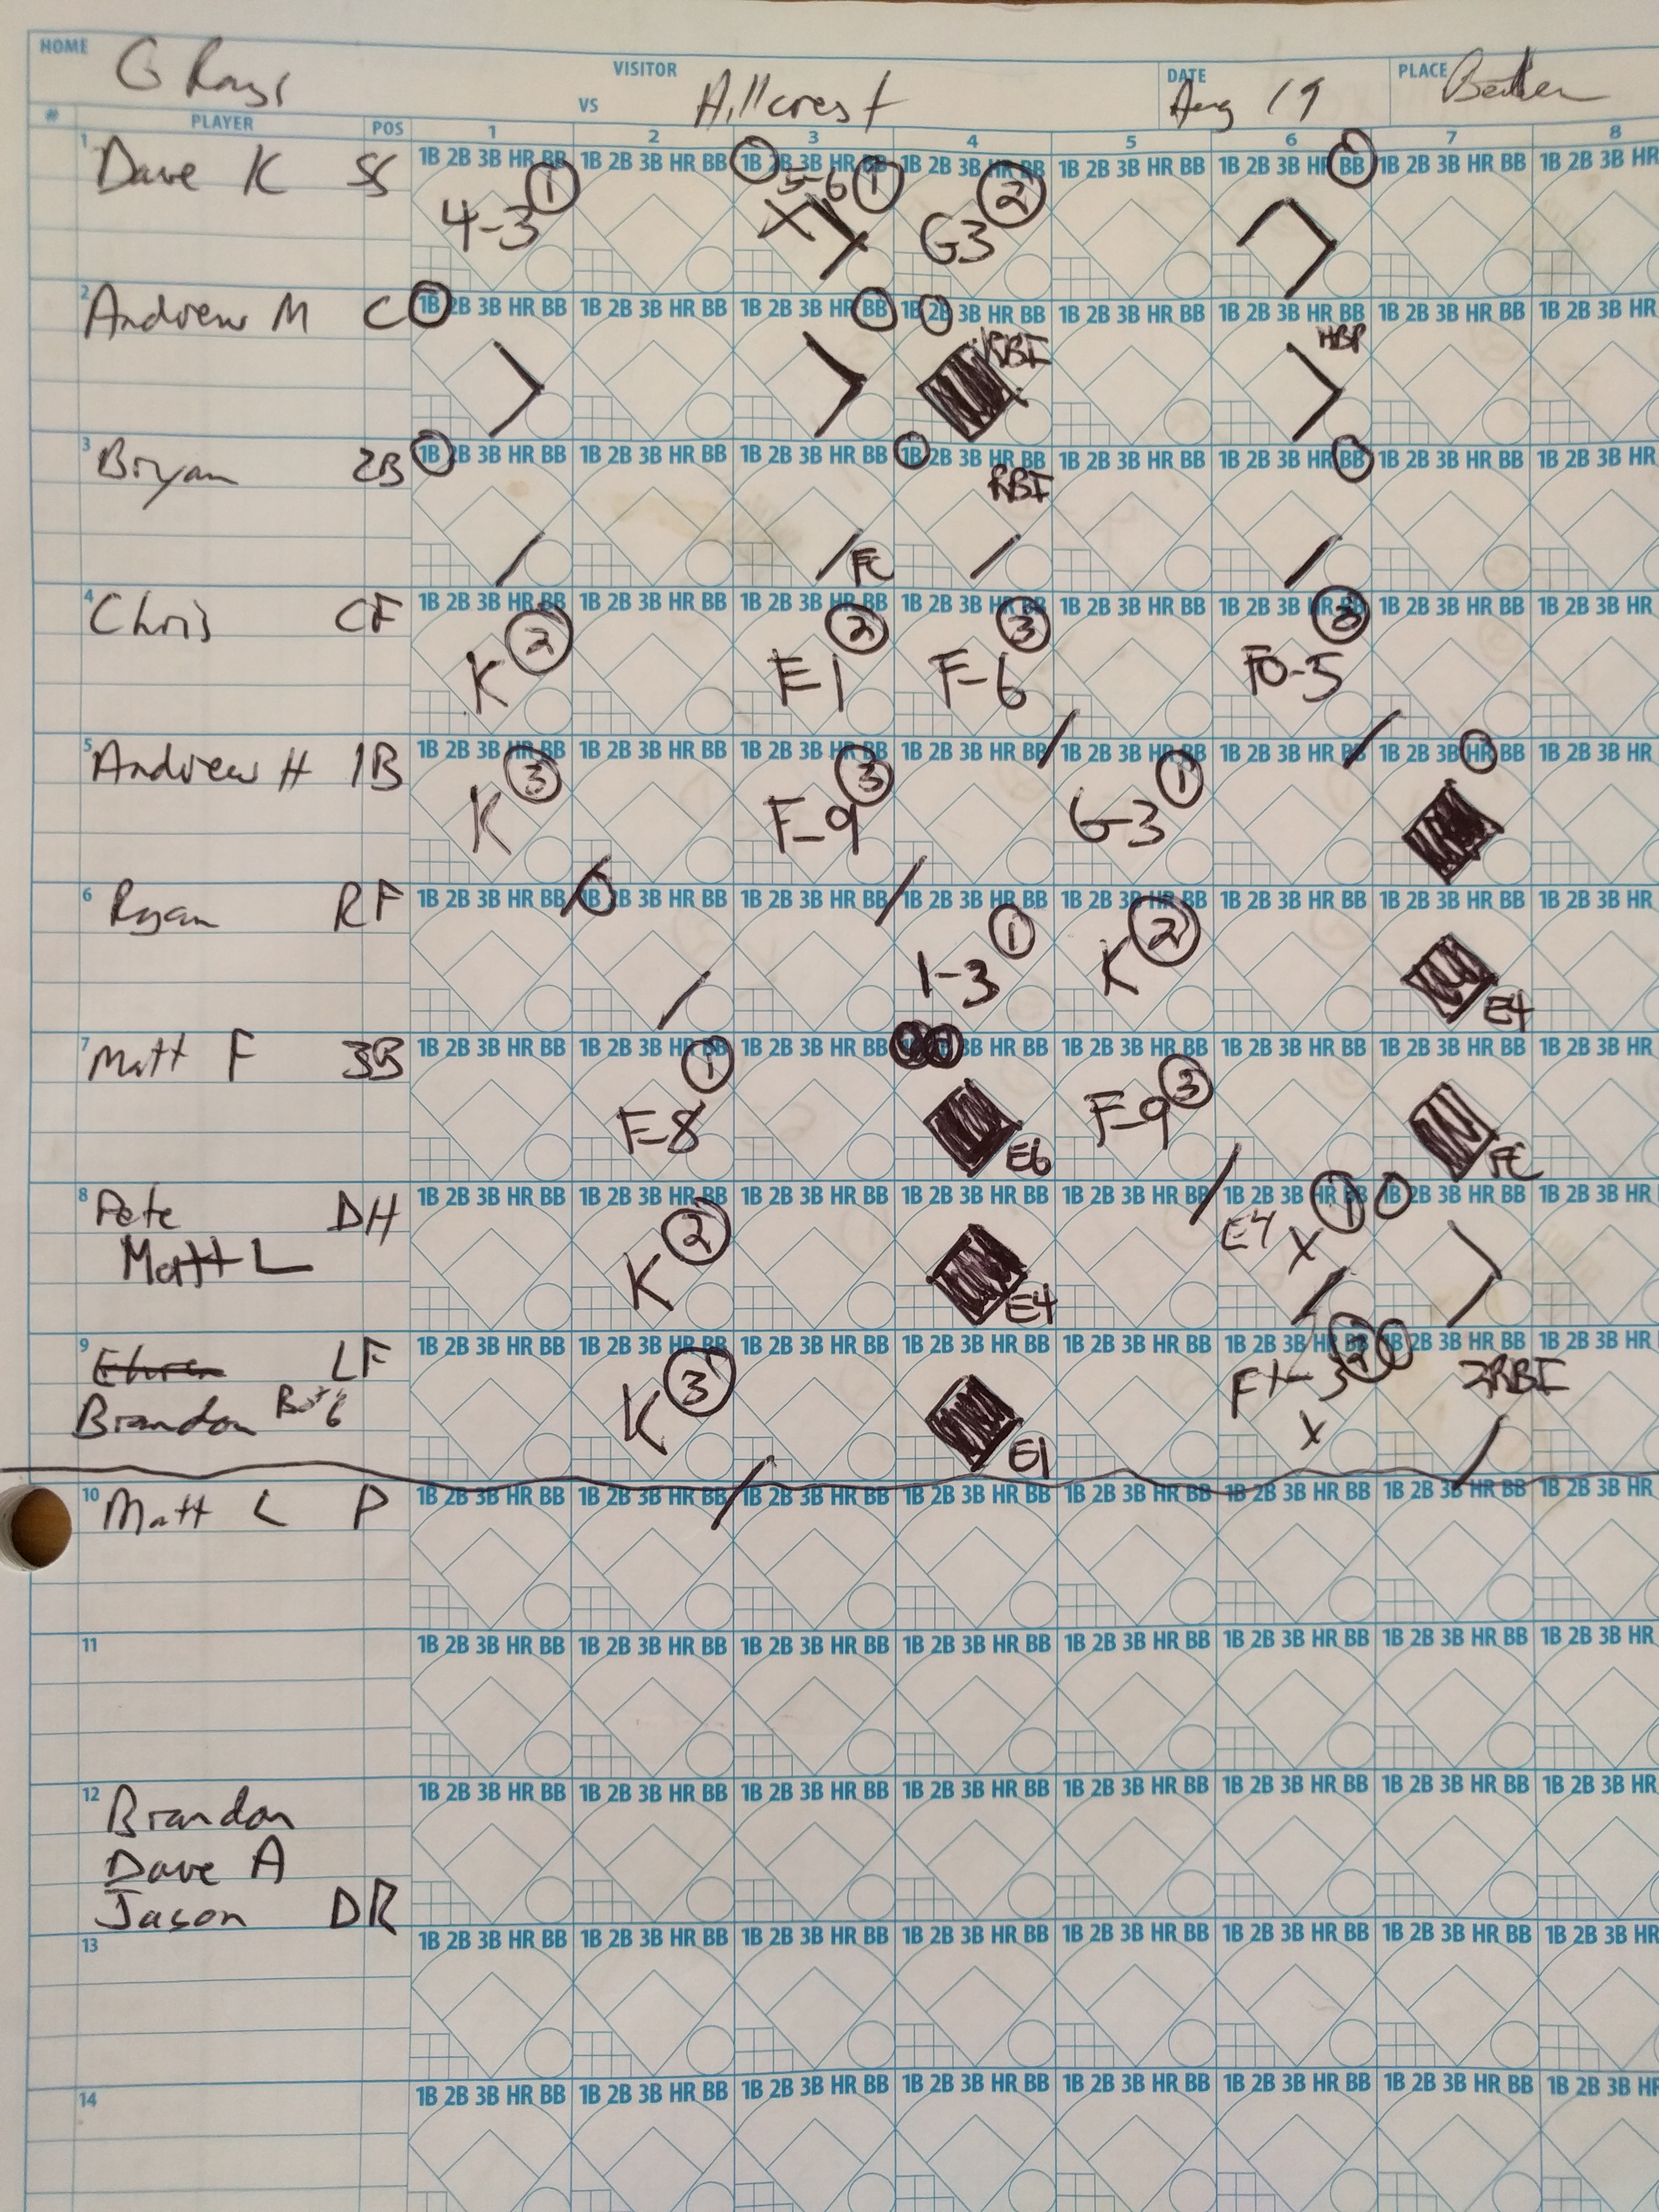 HOME G Rays VISITOR VS Hillcrest DATE Aug 19 PLACE
# PLAYER POS 1 2 3 4 5 6 7 8
1 Dave K SS 1B 2B 3B HR BB 1B 2B 3B HR BB 1B 2B 3B HR BB 1B 2B 3B HR BB 1B 2B 3B HR BB 1B 2B 3B HR BB 1B 2B 3B HR BB 1B 2B 3B HR
4-3 1 5-6 1 X G3 2
2 Andrew M C 1B 2B 3B HR BB 1B 2B 3B HR BB 1B 2B 3B HR BB 1B 2B 3B HR BB 1B 2B 3B HR BB 1B 2B 3B HR BB 1B 2B 3B HR BB 1B 2B 3B HR
RBI HBP
3 Bryan 2B 1B 2B 3B HR BB 1B 2B 3B HR BB 1B 2B 3B HR BB 1B 2B 3B HR BB 1B 2B 3B HR BB 1B 2B 3B HR BB 1B 2B 3B HR BB 1B 2B 3B HR
FC RBI
4 Chris CF 1B 2B 3B HR BB 1B 2B 3B HR BB 1B 2B 3B HR BB 1B 2B 3B HR BB 1B 2B 3B HR BB 1B 2B 3B HR BB 1B 2B 3B HR BB 1B 2B 3B HR
K 2 F1 2 F-6 3 FO-5 3
5 Andrew H 1B 1B 2B 3B HR BB 1B 2B 3B HR BB 1B 2B 3B HR BB 1B 2B 3B HR BB 1B 2B 3B HR BB 1B 2B 3B HR BB 1B 2B 3B HR BB 1B 2B 3B HR
K 3 F-9 3 G-3 1
6 Ryan RF 1B 2B 3B HR BB 1B 2B 3B HR BB 1B 2B 3B HR BB 1B 2B 3B HR BB 1B 2B 3B HR BB 1B 2B 3B HR BB 1B 2B 3B HR BB 1B 2B 3B HR
1-3 1 K 2 E4
7 Matt F 3B 1B 2B 3B HR BB 1B 2B 3B HR BB 1B 2B 3B HR BB 3B HR BB 1B 2B 3B HR BB 1B 2B 3B HR BB 1B 2B 3B HR BB 1B 2B 3B HR
F-8 1 E6 F-9 3 FC
8 Pete DH 1B 2B 3B HR BB 1B 2B 3B HR BB 1B 2B 3B HR BB 1B 2B 3B HR BB 1B 2B 3B HR BB 1B 2B 3B HR BB 1B 2B 3B HR BB 1B 2B 3B HR
Matt L K 2 E4 E4 X 1
9 Ehren LF 1B 2B 3B HR BB 1B 2B 3B HR BB 1B 2B 3B HR BB 1B 2B 3B HR BB 1B 2B 3B HR BB 1B 2B 3B HR BB 1B 2B 3B HR BB 1B 2B 3B HR
Brandon Bot 6 K 3 E1 2 X 2RBI
10 Matt L P 1B 2B 3B HR BB 1B 2B 3B HR BB 1B 2B 3B HR BB 1B 2B 3B HR BB 1B 2B 3B HR BB 1B 2B 3B HR BB 1B 2B 3B HR BB 1B 2B 3B HR
11 1B 2B 3B HR BB 1B 2B 3B HR BB 1B 2B 3B HR BB 1B 2B 3B HR BB 1B 2B 3B HR BB 1B 2B 3B HR BB 1B 2B 3B HR BB 1B 2B 3B HR
12 Brandon 1B 2B 3B HR BB 1B 2B 3B HR BB 1B 2B 3B HR BB 1B 2B 3B HR BB 1B 2B 3B HR BB 1B 2B 3B HR BB 1B 2B 3B HR BB 1B 2B 3B HR
Dave A
Jason DR
13 1B 2B 3B HR BB 1B 2B 3B HR BB 1B 2B 3B HR BB 1B 2B 3B HR BB 1B 2B 3B HR BB 1B 2B 3B HR BB 1B 2B 3B HR BB 1B 2B 3B HR
14 1B 2B 3B HR BB 1B 2B 3B HR BB 1B 2B 3B HR BB 1B 2B 3B HR BB 1B 2B 3B HR BB 1B 2B 3B HR BB 1B 2B 3B HR BB 1B 2B 3B HR